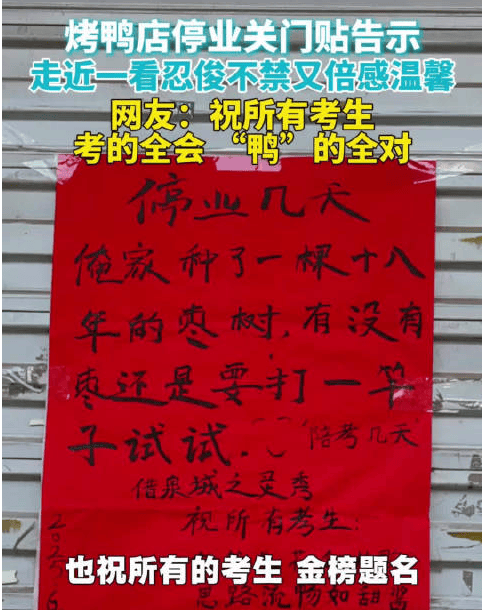 烤鸭店停业关门贴告示
走近一看忍俊不禁又倍感温馨
网友：祝所有考生
考的全会 “鸭”的全对
停业几天
俺家种了一棵十八
年的枣树，有没有
枣还是要打一竿
子试试.
陪考几天
借泉城之灵秀
祝所有考生：
也祝所有的考生 金榜题名
思路流畅如甜浆